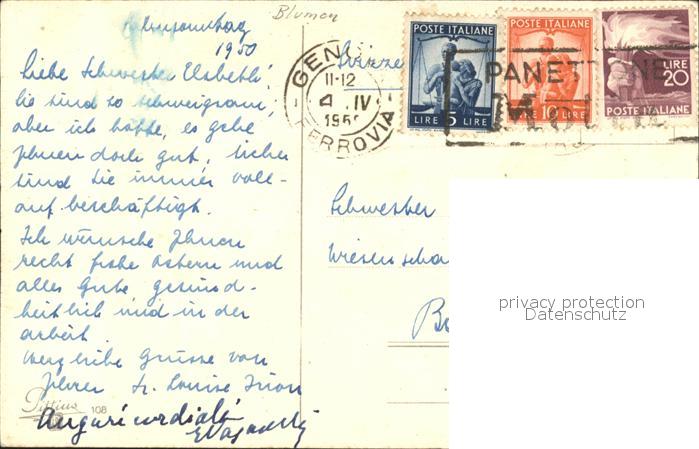 Palmsonntag
1950
Liebe Schwester Elsbeth!
Sie sind so schweigsam,
aber ich hoffe, es gehe
Ihnen doch gut, sicher
sind Sie immer voll-
auf beschäftigt.
Ich wünsche Ihnen
recht frohe Ostern und
alles Gute gesund-
heitlich und in der
Arbeit.
Herzliche Grüsse von
Ihrer Sr. Louise
Auguri cordiali
Pittius
108
Blumen
Svizze
GENO
11-12
4 . IV
195
FERROVIA
POSTE ITALIANE
LIRE 5 LIRE
POSTE ITALIANE
LIRE 10 LIRE
LIRE
20
POSTE ITALIANE
PANETTONE
Schwester
Wiesenscha
B
privacy protection
Datenschutz